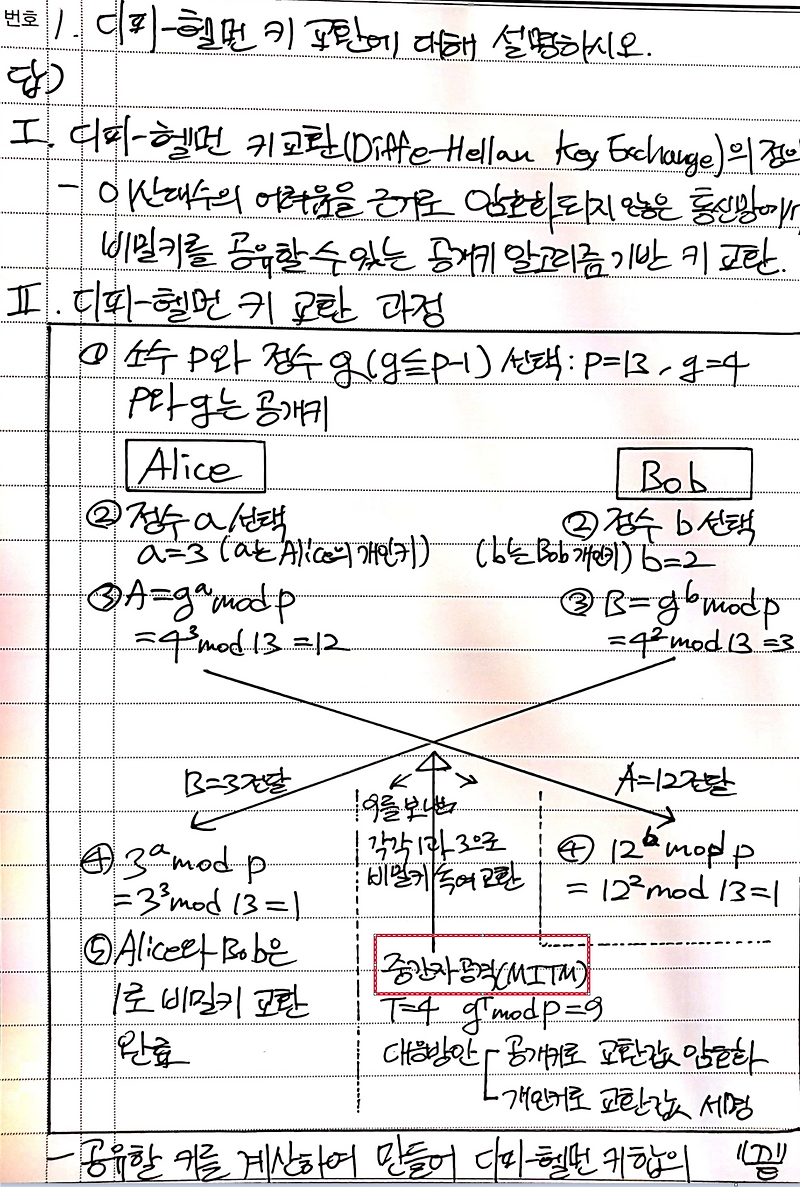 번호 1. 디피-헬먼 키 교환에 대해 설명하시오.
답)
I. 디피-헬먼 키교환(Diffe-Hellan Key Exchange)의 정의
- 이산대수의 어려움을 근거로 암호화되지 않은 통신망에서
비밀키를 공유할 수 있는 공개키 알고리즘 기반 키 교환.
II. 디피-헬먼 키 교환 과정
① 소수 p와 정수 g(g≦p-1) 선택: p=13, g=4
p와 g는 공개키
Alice
Bob
② 정수 a 선택
a=3 (a는 Alice의 개인키)
② 정수 b 선택
(b는 Bob 개인키) b=2
③ A=gᵃ mod p
=4³ mod 13 =12
③ B=gᵇ mod p
=4² mod 13 =3
B=3 전달
A=12 전달
9를 보내
각각 1과 3으로
비밀키 속여 교환
④ 3ᵃ mod p
=3³ mod 13 =1
④ 12ᵇ mop p
=12² mod 13 =1
⑤ Alice와 Bob은
1로 비밀키 교환
완료
중간자 공격(MITM)
T=4 gᵀ mod p=9
대응방안 공개키로 교환값 암호화
개인키로 교환값 서명
- 공유할 키를 계산하여 만들어 디피-헬먼 키 합의 "끝"